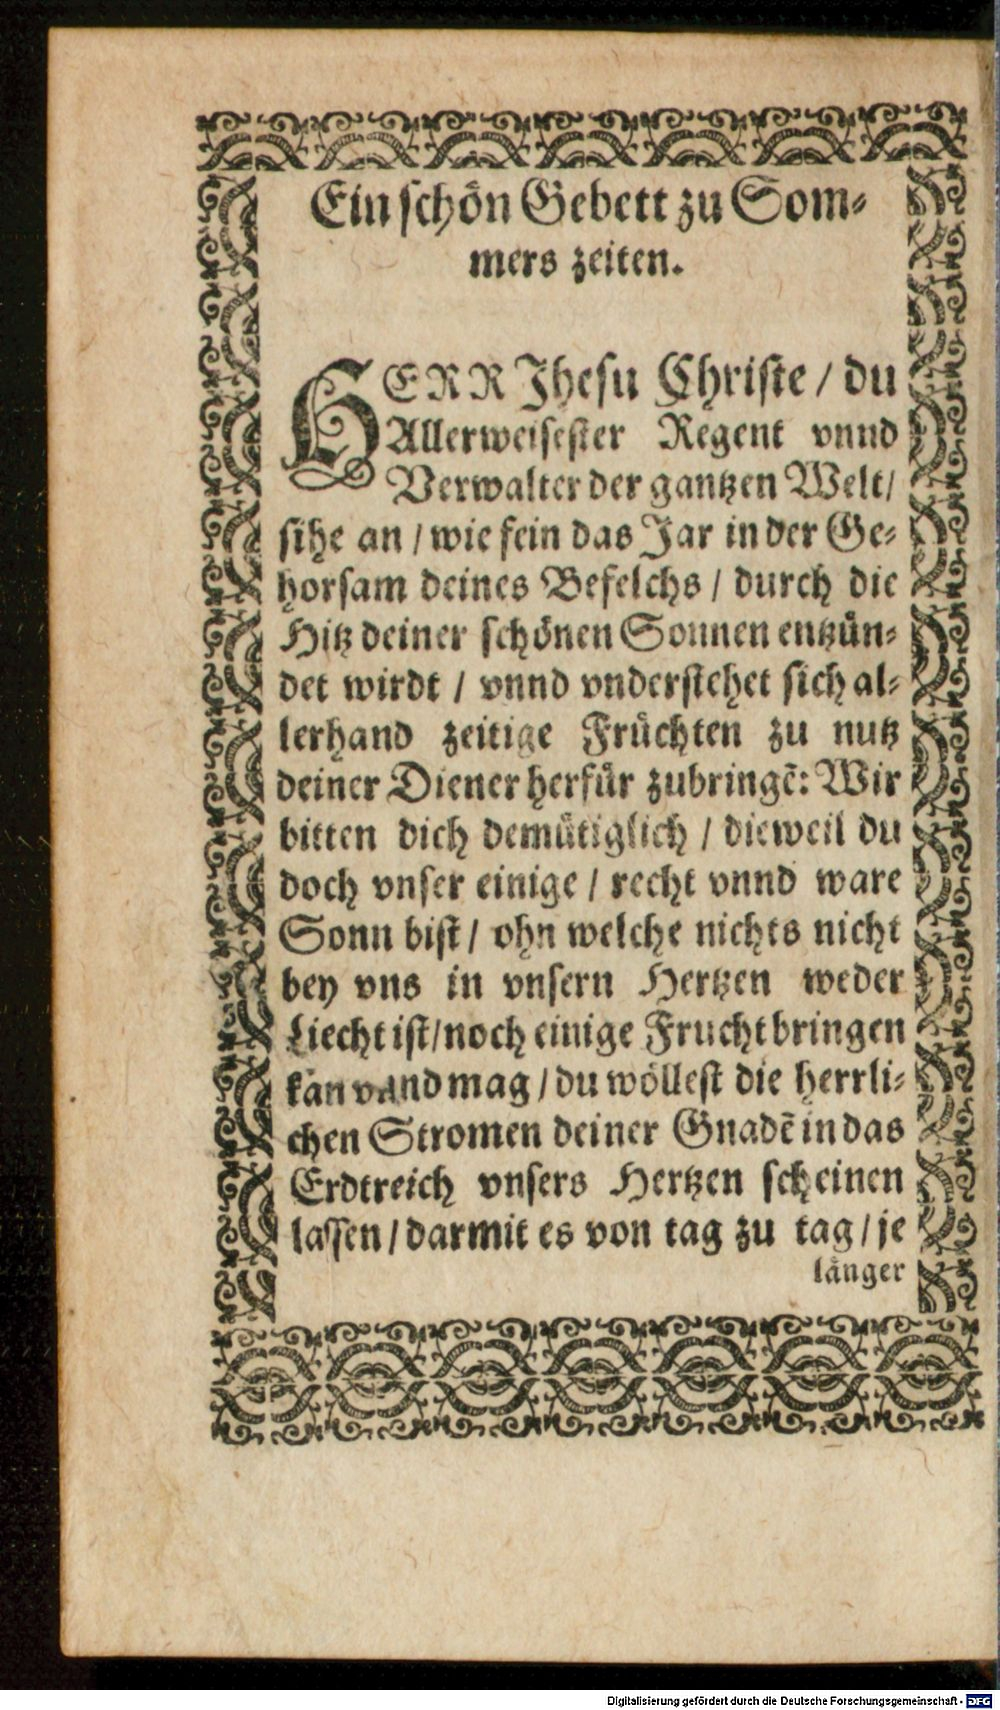 Ein schön Gebett zu Som⸗
mers zeiten.
HERR Jhesu Christe / du
Allerweisester Regent vnnd
Verwalter der gantzen Welt /
sihe an / wie fein das Jar in der Ge⸗
horsam deines Befelchs / durch die
Hitz deiner schönen Sonnen entzün⸗
det wirdt / vnnd vnderstehet sich al⸗
lerhand zeitige Früchten zu nutz
deiner Diener herfür zubringẽ: Wir
bitten dich demütiglich / dieweil du
doch vnser einige / recht vnnd ware
Sonn bist / ohn welche nichts nicht
bey vns in vnsern Hertzen weder
Liecht ist / noch einige Frucht bringen
kan vnnd mag / du wöllest die herrli⸗
chen Stromen deiner Gnadẽ in das
Erdtreich vnsers Hertzen scheinen
lassen / darmit es von tag zu tag / je
länger
Digitalisierung gefördert durch die Deutsche Forschungsgemeinschaft - DFG